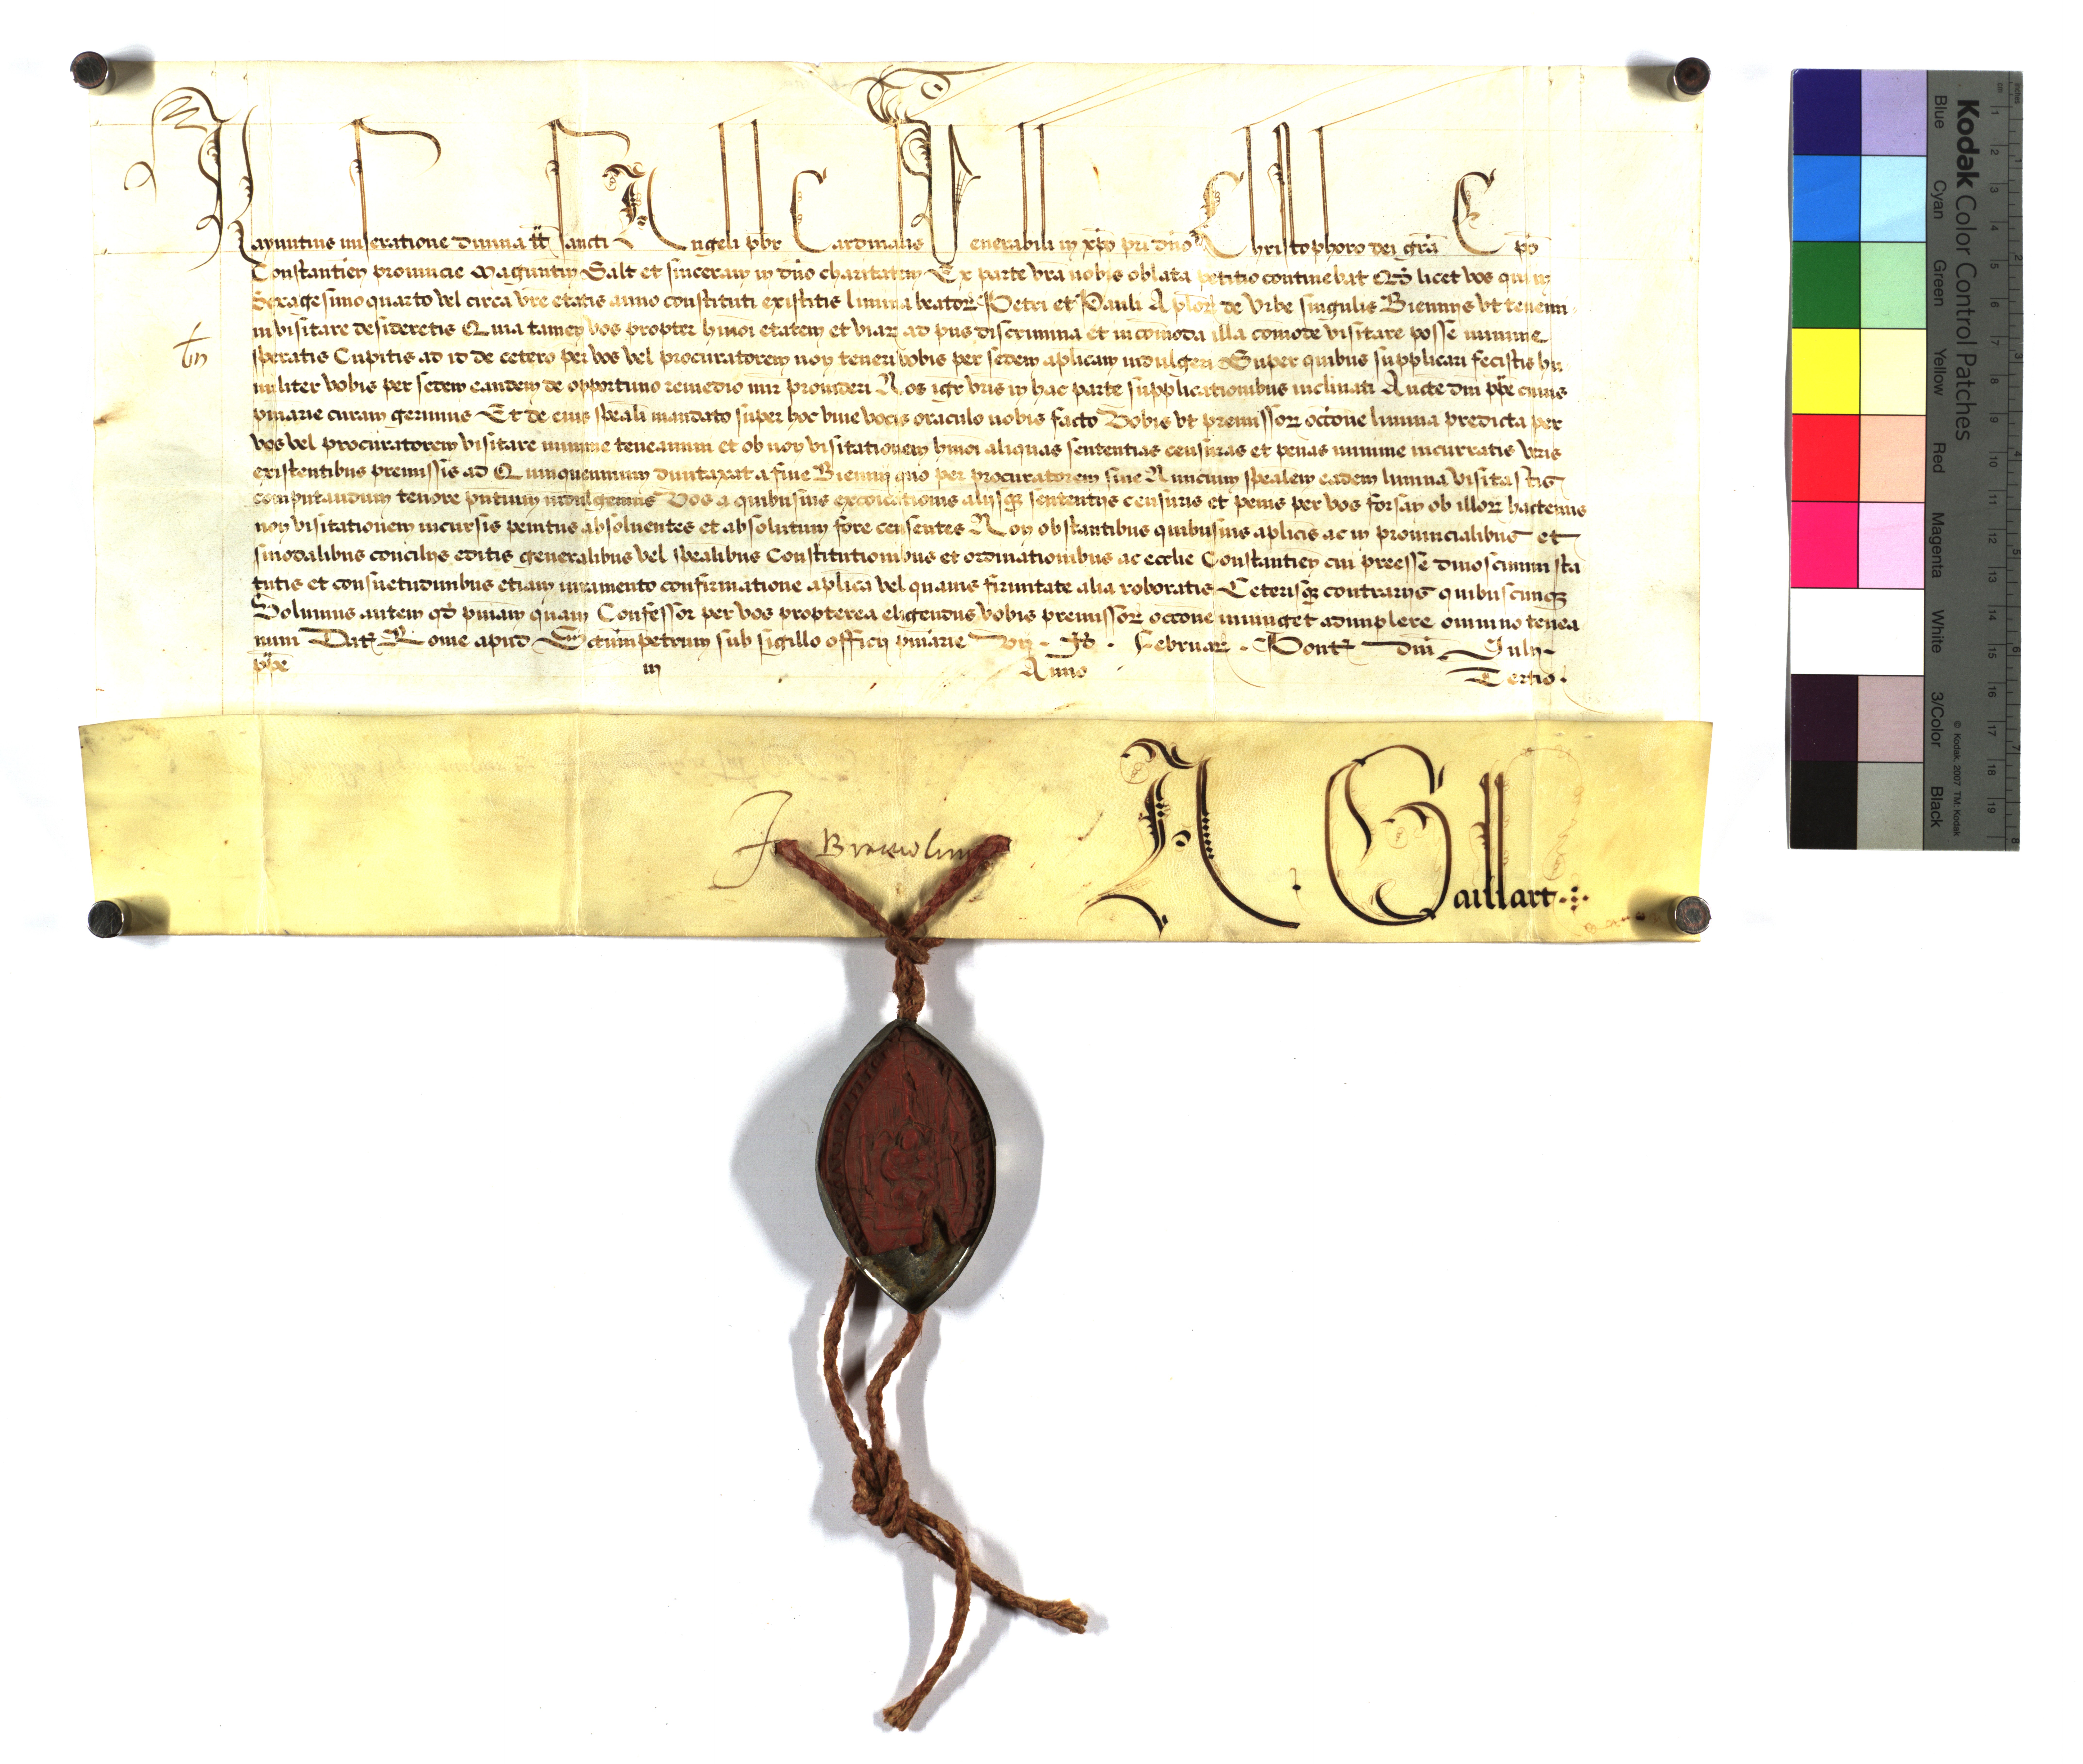 Raynutius miseratione diuina tt sancti Angeli pbr Cardinalis Venerabili in xpo pri dno Christophoro dei gra Epo
Constantien prouincie Maguntin Salt et sinceram in dno charitatem Ex parte vra nobis oblata petitio continebat Qd licet vos qui in
Sexagesimo quarto vel circa vre etatis anno constituti existitis limina beator Petri et Pauli Aplor de Vrbe singulis Biennijs vt tenemi
ni visitare desideretis Quia tamen vos propter hmoi etatem et viar ad pns discrimina et incomoda illa comode visitare posse minime
speratis Cupitis ad id de cetero per vos vel procuratorem non teneri vobis per sedem aplicam indulgeri Super quibus supplicari fecistis hu
militer vobis per sedem eandem de opportuno remedio mir prouideri Nos igr vris in hac parte supplicationibus inclinati Aucte dni ppe cuius
pniarie curam gerimus Et de eius speali mandato super hoc viue vocis oraculo nobis facto Vobis vt premissor occone limina predicta per
vos vel procuratorem visitare minime teneamini et ob non visitationem hmoi aliquas sententias censuras et penas minime incurratis vris
existentibus premissis ad Quinquennium duntaxat a fine Biennij quo per procuratorem siue Nuncium spealem eadem limina visitastis
computandum tenore pntium indulgemus Vos a quibusuis excoicationis alijsq sententijs censuris et penis per vos forsan ob illor hactenus
non visitationem incursis penitus absoluentes et absolutum fore censentes Non obstantibus quibusuis aplicis ac in prouincialibus et
sinodalibus concilijs editis generalibus vel spealibus Constitutionibus et ordinationibus ac ecclie Constantien cui preesse dinoscimini sta
tutis et consuetudinibus etiam iuramento confirmatione aplica vel quauis firmitate alia roboratis Ceterisq contrarijs quibuscunq
Volumus autem qd pniam quam Confessor per vos propterea eligendus vobis premissor occone iniunget adimplere omnino tenea
mini Dat Rome apud Sctumpetrum sub sigillo officij pniarie vij Id Februar Pont dni Iulij
ppe iij Anno Tertio
A Gaillart
Kodak Color Control Patches
Blue Cyan Green Yellow Red Magenta White 3/Color Black
© Kodak, 2007 TM: Kodak
inches 1 2 3 4 5 6 7 8
cm 1 2 3 4 5 6 7 8 9 10 11 12 13 14 15 16 17 18 19